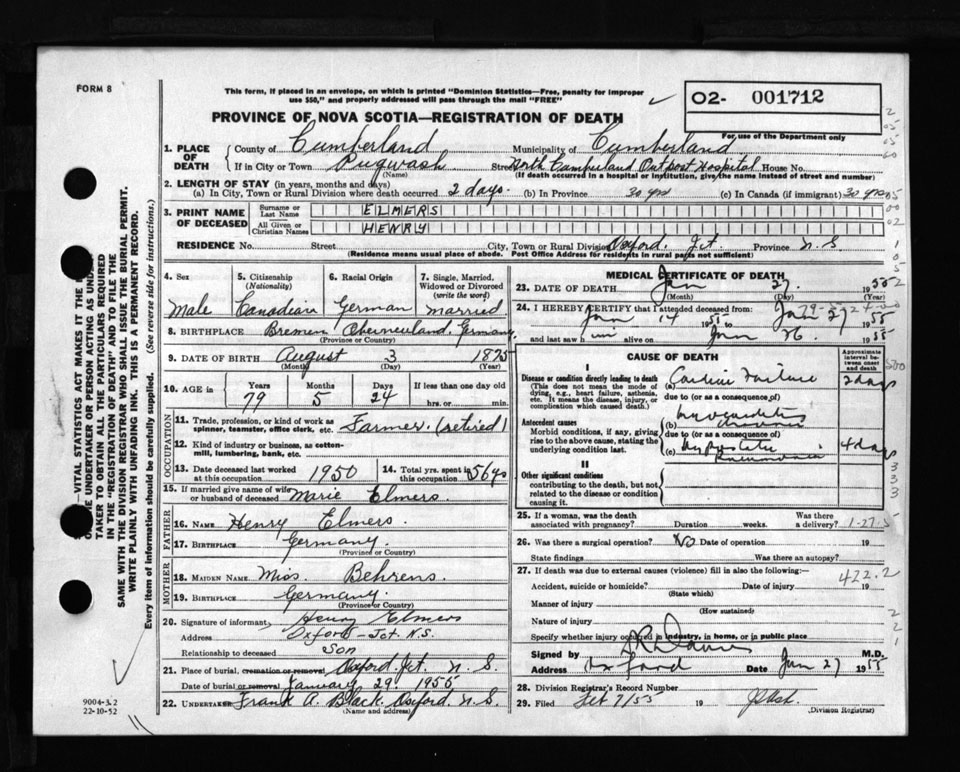 FORM 8
This form, if placed in an envelope, on which is printed "Dominion Statistics—Free, penalty for improper
use $50," and properly addressed will pass through the mail "FREE"
02- 001712
For use of the Department only
PROVINCE OF NOVA SCOTIA—REGISTRATION OF DEATH
1. PLACE OF DEATH County of Cumberland Municipality of Cumberland
If in City or Town Pugwash Street North Cumberland Outpost Hospital House No.
(Name) (If death occurred in a hospital or institution, give the name instead of street and number)
2. LENGTH OF STAY (in years, months and days)
(a) In City, Town or Rural Division where death occurred 2 days. (b) In Province 30 yrs (c) In Canada (if immigrant) 30 yrs
3. PRINT NAME OF DECEASED Surname or Last Name ELMERS
All Given or Christian Names HENRY
RESIDENCE No. Street City, Town or Rural Division Oxford Jct. Province N.S.
(Residence means usual place of abode. Post Office Address for residents in rural parts not sufficient)
4. Sex 5. Citizenship (Nationality) 6. Racial Origin 7. Single, Married, Widowed or Divorced (write the word)
Male Canadian German married
8. BIRTHPLACE Bremen Oberneuland, Germany
(Province or Country)
9. DATE OF BIRTH August 3 1875
(Month) (Day) (Year)
10. AGE in Years Months Days If less than one day old
79 5 24 hrs. or min.
OCCUPATION
11. Trade, profession, or kind of work as spinner, teamster, office clerk, etc. Farmer (retired)
12. Kind of industry or business, as cotton-mill, lumbering, bank, etc.
13. Date deceased last worked at this occupation 1950 14. Total yrs. spent in this occupation 56 yrs
15. If married give name of wife or husband of deceased Marie Elmers
FATHER
16. NAME Henry Elmers.
17. BIRTHPLACE Germany.
(Province or Country)
MOTHER
18. MAIDEN NAME Miss. Behrens.
19. BIRTHPLACE Germany.
(Province or Country)
20. Signature of informant Henry Elmers
Address Oxford Jct. N.S.
Relationship to deceased Son
21. Place of burial, cremation or removal Oxford Jct. N.S.
Date of burial or removal January 29. 1955
22. UNDERTAKER Frank A. Black. Oxford N.S.
(Name and address)
MEDICAL CERTIFICATE OF DEATH
23. DATE OF DEATH Jan 27. 1955
(Month) (Day) (Year)
24. I HEREBY CERTIFY that I attended deceased from:
Jan 14 1955 to Jan 27 1955
and last saw him alive on Jan 26. 1955
CAUSE OF DEATH
Approximate interval between onset and death
I
Disease or condition directly leading to death (a) Cardiac Failure 2 days
(This does not mean the mode of dying, e.g., heart failure, asthenia, etc. It means the disease, injury, or complication which caused death.)
due to (or as a consequence of)
Antecedent causes
Morbid conditions, if any, giving rise to the above cause, stating the underlying condition last.
(b) myocarditis chronic
due to (or as a consequence of)
(c) hypostatic pneumonia 4 days
II
Other significant conditions
contributing to the death, but not related to the disease or condition causing it.
25. If a woman, was the death associated with pregnancy? Duration weeks. Was there a delivery?
1-27-5
26. Was there a surgical operation? No Date of operation 19
State findings Was there an autopsy?
27. If death was due to external causes (violence) fill in also the following:
422.2
Accident, suicide or homicide? Date of injury 19
(State which)
Manner of injury
(How sustained)
Nature of injury
Specify whether injury occurred in industry, in home, or in public place
Signed by M.D.
Address Oxford Date Jan 27 1955
28. Division Registrar's Record Number
29. Filed Feb 7/55 19
(Division Registrar)
VITAL STATISTICS ACT MAKES IT THE
UNDERTAKER OR PERSON ACTING AS UNDER-
TAKER TO OBTAIN ALL THE PARTICULARS REQUIRED
IN THE "REGISTRATION OF DEATH" AND TO FILE THE
SAME WITH THE DIVISION REGISTRAR WHO SHALL ISSUE THE BURIAL PERMIT.
WRITE PLAINLY WITH UNFADING INK. THIS IS A PERMANENT RECORD.
Every item of information should be carefully supplied. (See reverse side for instructions.)
9004-3.2
22-10-52